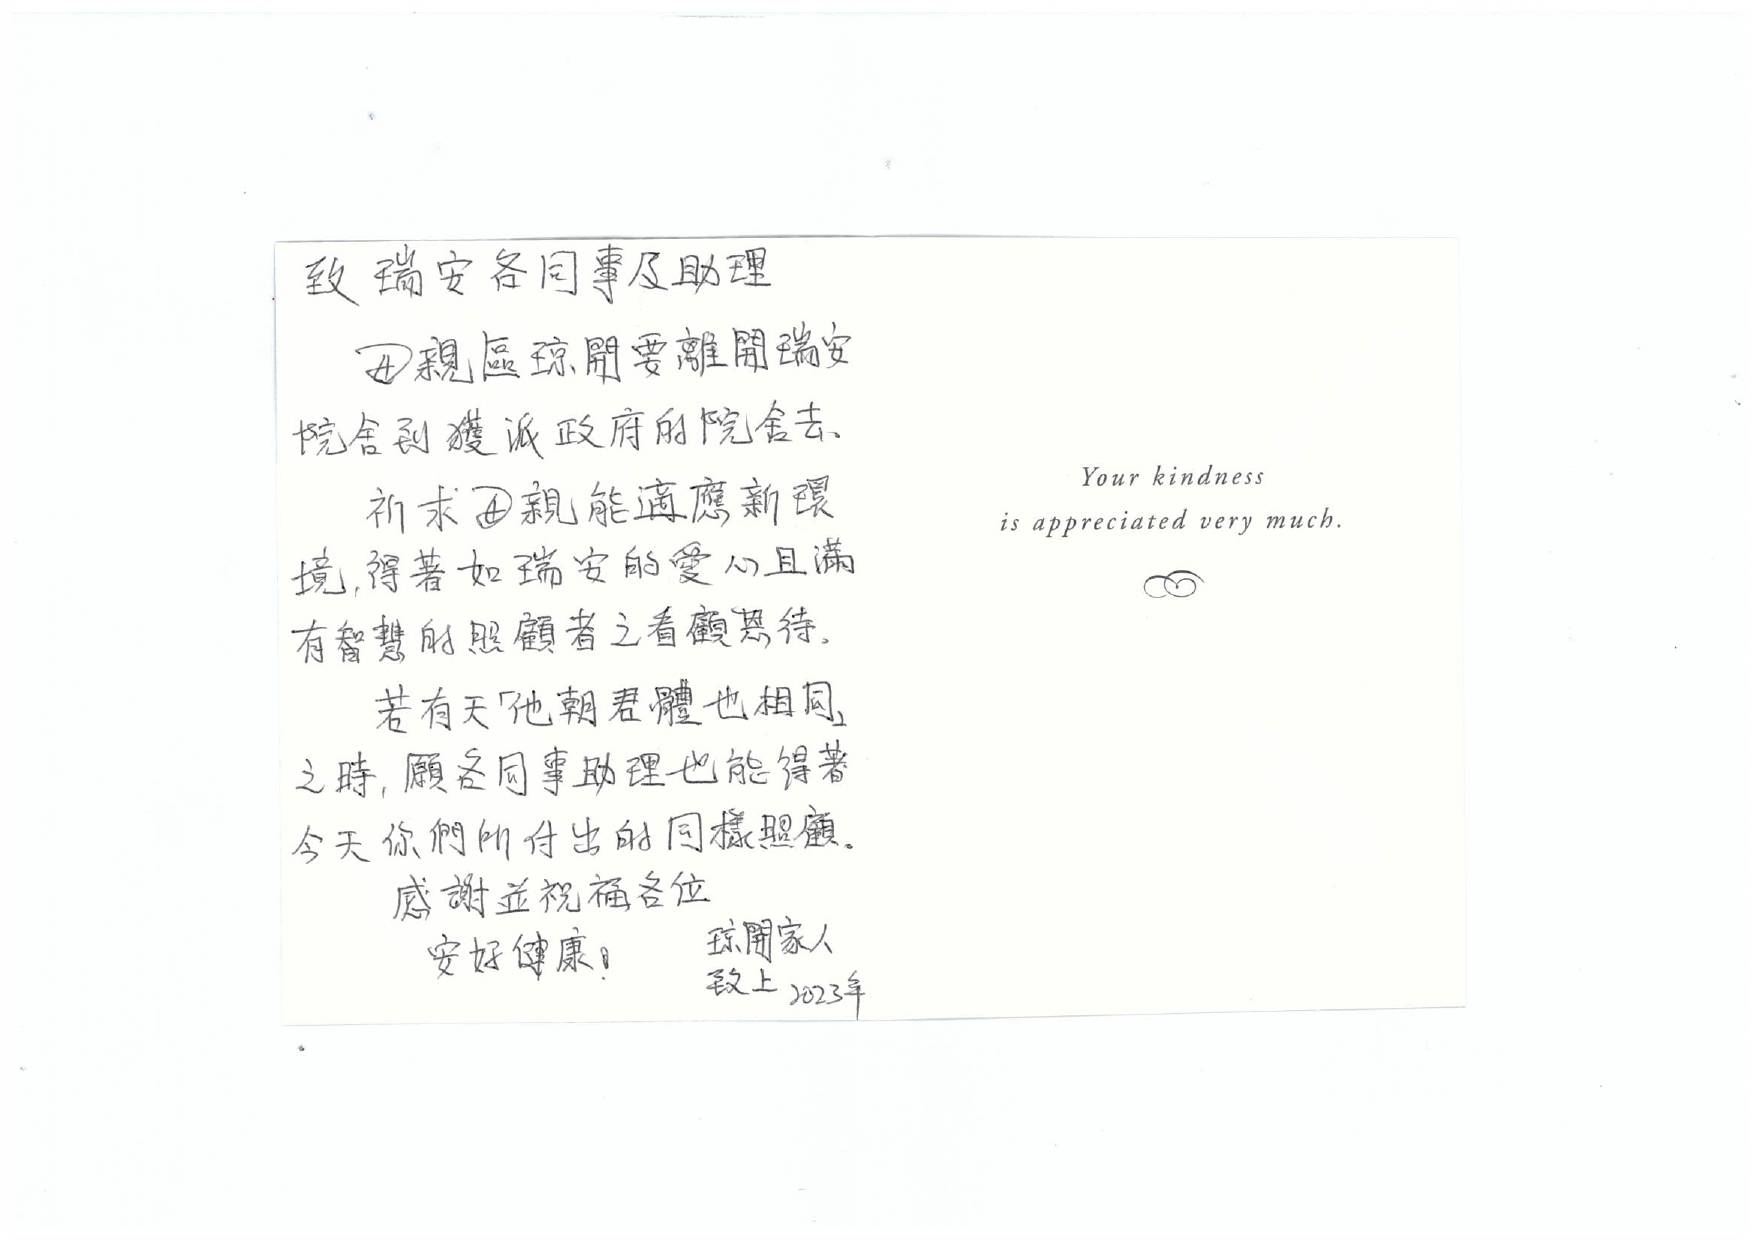 致瑞安各同事及助理
母親區琼開要離開瑞安
院舍到獲派政府的院舍去、
祈求母親能適應新環
境,得著如瑞安的愛心且滿
有智慧的照顧者之看顧恭待。
若有天「他朝君體也相同」
之時,願各同事助理也能得著
今天你們所付出的同樣照顧。
感謝並祝福各位
安好健康!
琼開家人
致上 2023年
Your kindness
is appreciated very much.